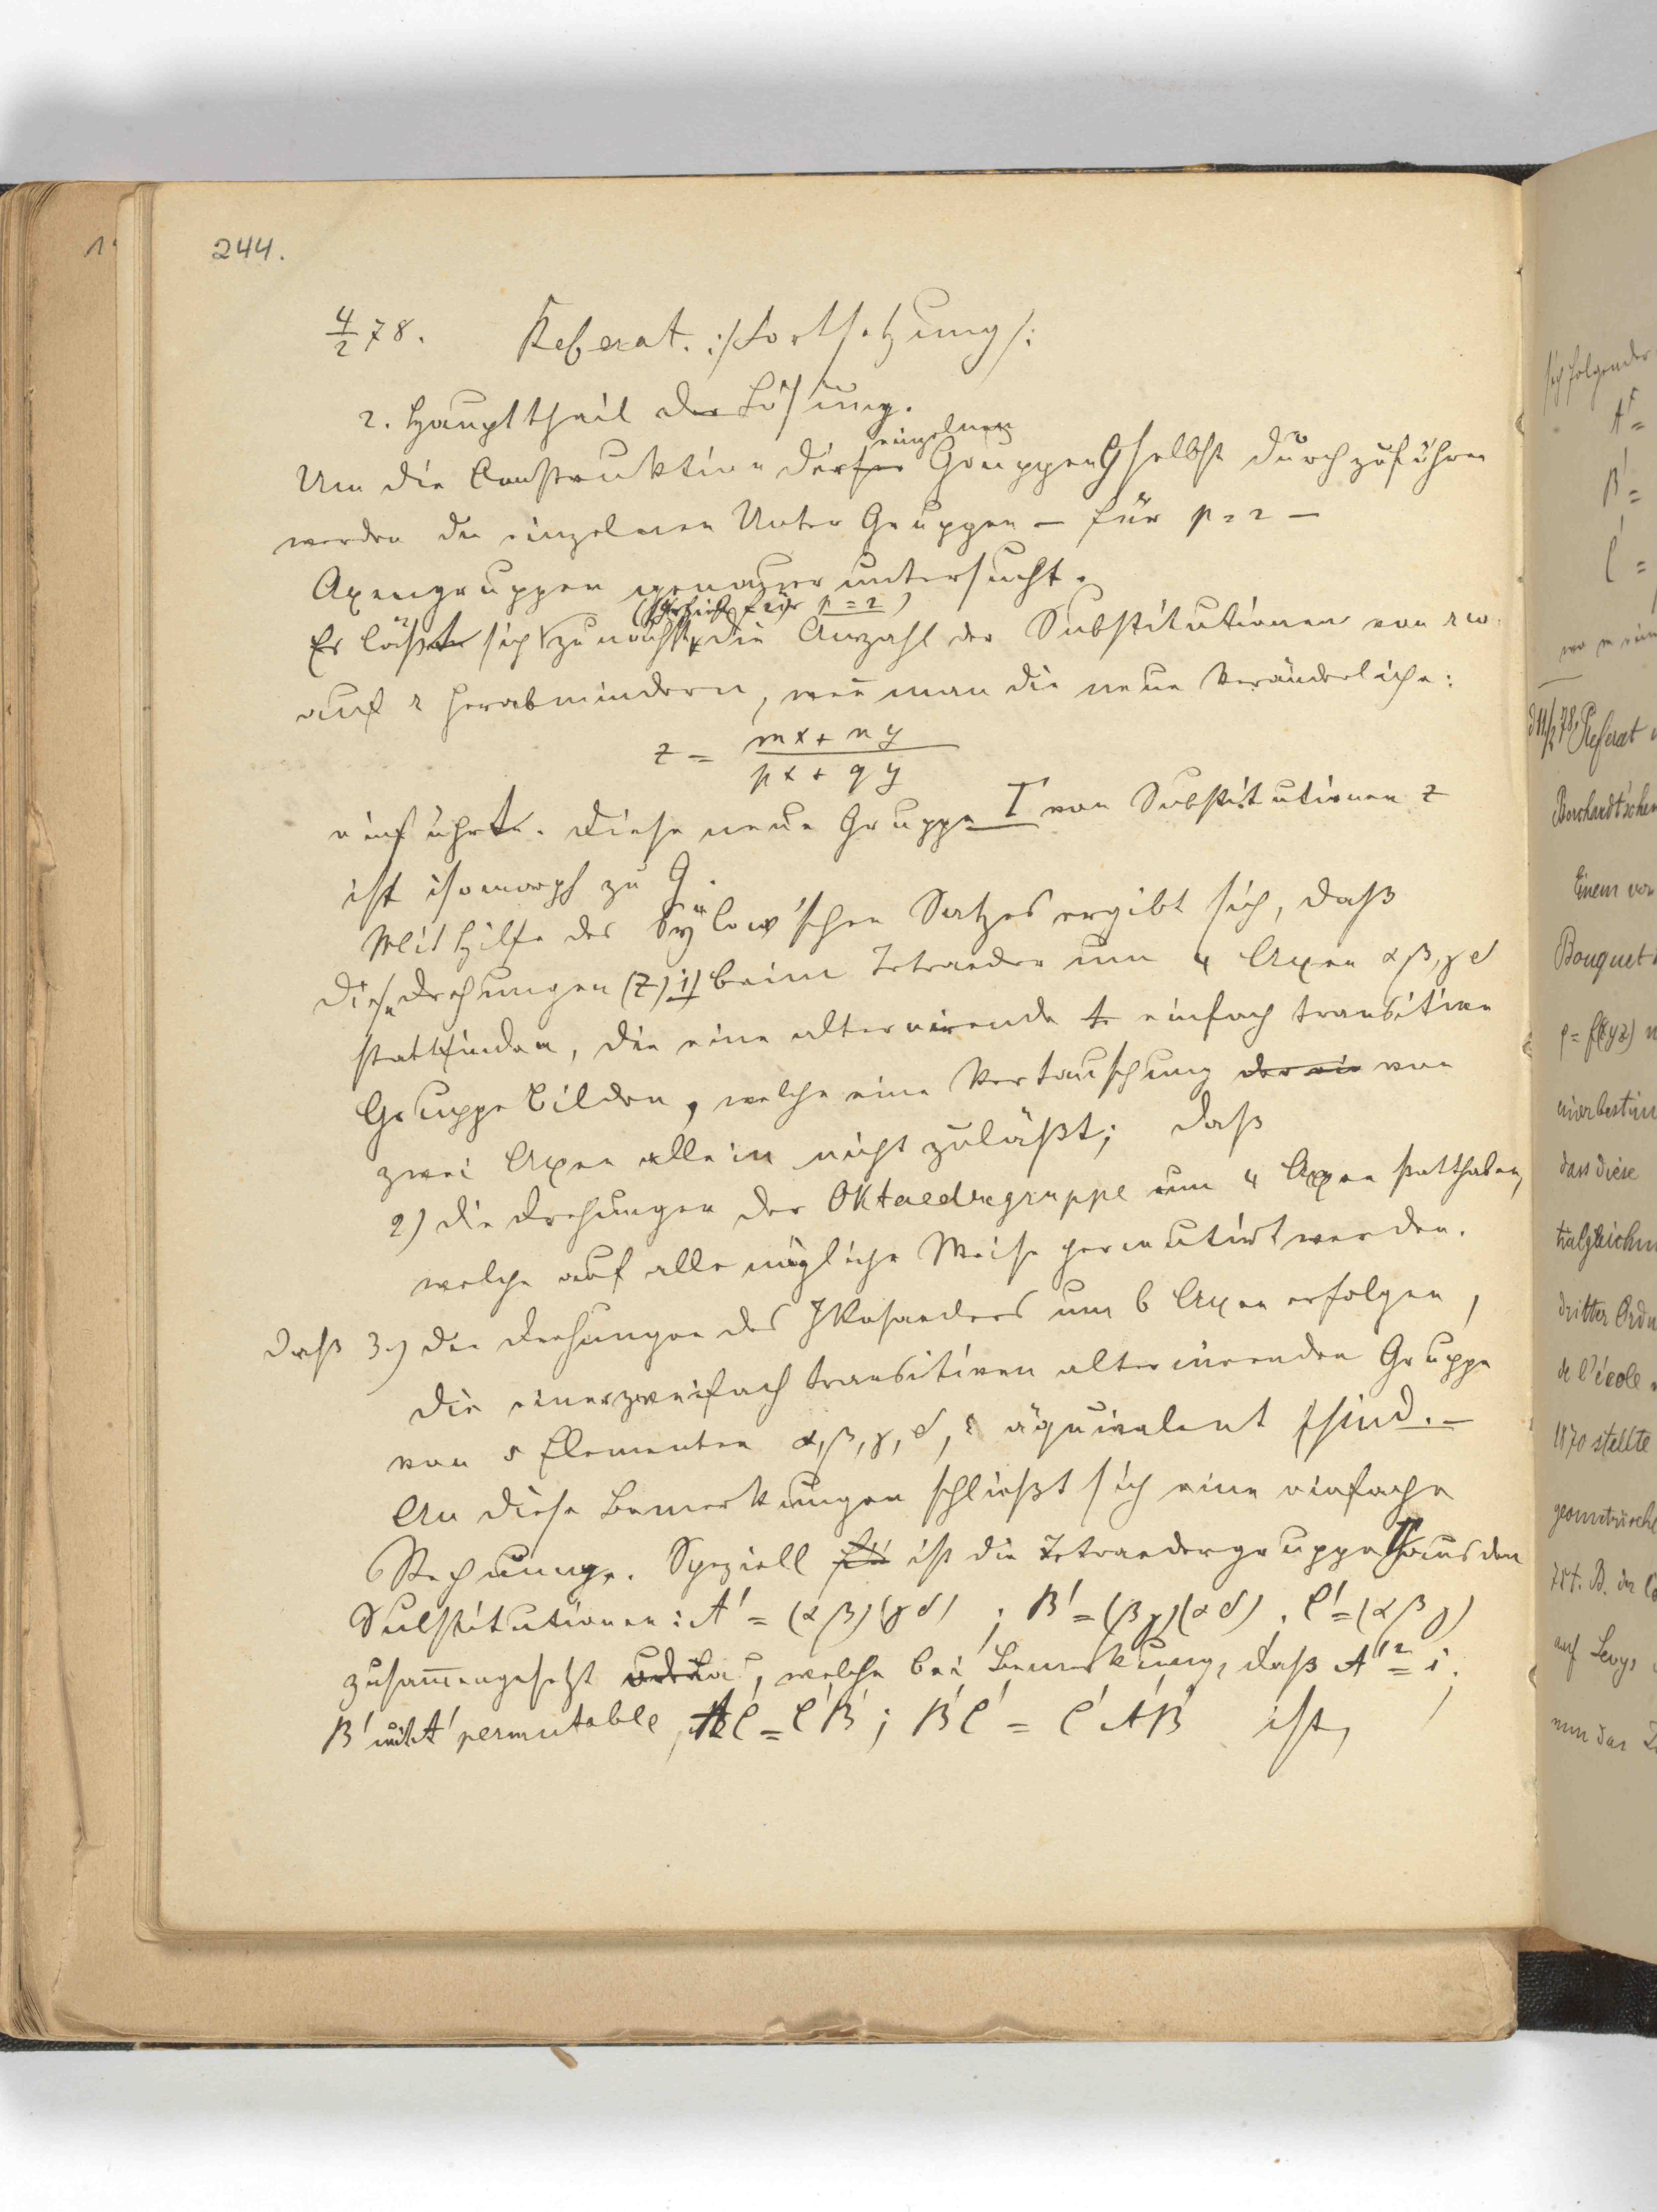 244.
4/2 78. Referat. :/Fortsetzung/:
2. Haupttheil der Lösung.
einzelnen
Um die Construktion der Gruppen G selbst durchzuführen
werden die einzelnen Unter Gruppen – für p = 2 –
Axengruppen genauer untersucht.
(speziell für p = 2)
Es läßt sich zunächst die Anzahl der Substitutionen von rω
auf r herabmindern, weñ man die neue Veränderliche:
z = (mx + ny)/(px + qy)
einführt. Diese neue Gruppe Γ von Substitutionen z
ist isomorph zu G.
Mit Hilfe des Sylow'schen Satzes ergibt sich, daß
diese Drehungen (z) 1) beim Tetraeder um 4 Axen α β, γ δ
stattfinden, die eine alternirende einfach transitive
Gruppe bilden, welche eine Vertauschung der ein von
zwei Axen allein nicht zuläßt; daß
2) die Drehungen der Oktaedergruppe um 4 Axen statthaben,
welche auf alle mögliche Weise permutirt werden.
daß 3.) die Drehungen des Ikosaeders um 6 Axen erfolgen,
die einer zweifach transitiven alternirenden Gruppe
von 5 Elementen α, β, γ, δ, ε äquivalent sind. –
An diese Bemerkungen schließt sich eine einfache
Rechnung. Speziell ist die Tetraedergruppe aus den
Substitutionen: A' = (α β) (γ δ) ; B' = (β γ) (α δ) . C' = (α β γ)
zusam̄engesetzt , welche bei Bemerkung, daß A'² = i,
B' mit A' permutable, A'C' = C'B' ; B'C' = C'A'B' ist,
sich folgender
A' =
B' =
C' =
wo m ein
d 11/2 78, Referat
Borchardt'schen
Einem von
Bouquet
φ = f(xyz)
dass diese
dritter Ordn
de l'école
1870 stellte
geometrische
auf Levy's
nun das